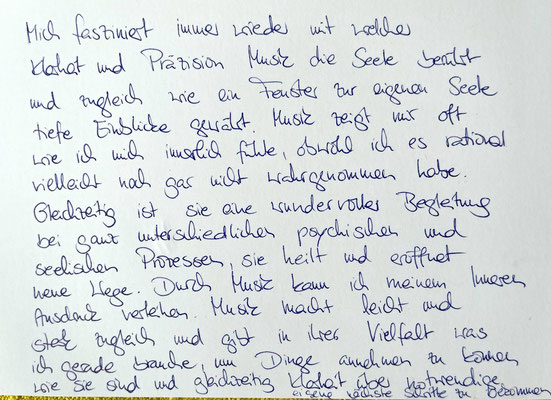 Mich fasziniert immer wieder mit welcher
Klarheit und Präzision Musik die Seele berührt
und zugleich wie ein Fenster zur eigenen Seele
tiefe Einblicke gewährt. Musik zeigt mir oft
wie ich mich innerlich fühle, obwohl ich es rational
vielleicht noch gar nicht wahrgenommen habe.
Gleichzeitig ist sie eine wundervolle Begleitung
bei ganz unterschiedlichen psychischen und
seelischen Prozessen, sie heilt und eröffnet
neue Wege. Durch Musik kann ich meinem Inneren
Ausdruck verleihen. Musik macht leicht und
stark zugleich und gibt in ihrer Vielfalt was
ich gerade brauche, um Dinge annehmen zu können
wie sie sind und gleichzeitig Klarheit über notwendige,
eigene nächste Schritte zu bekommen